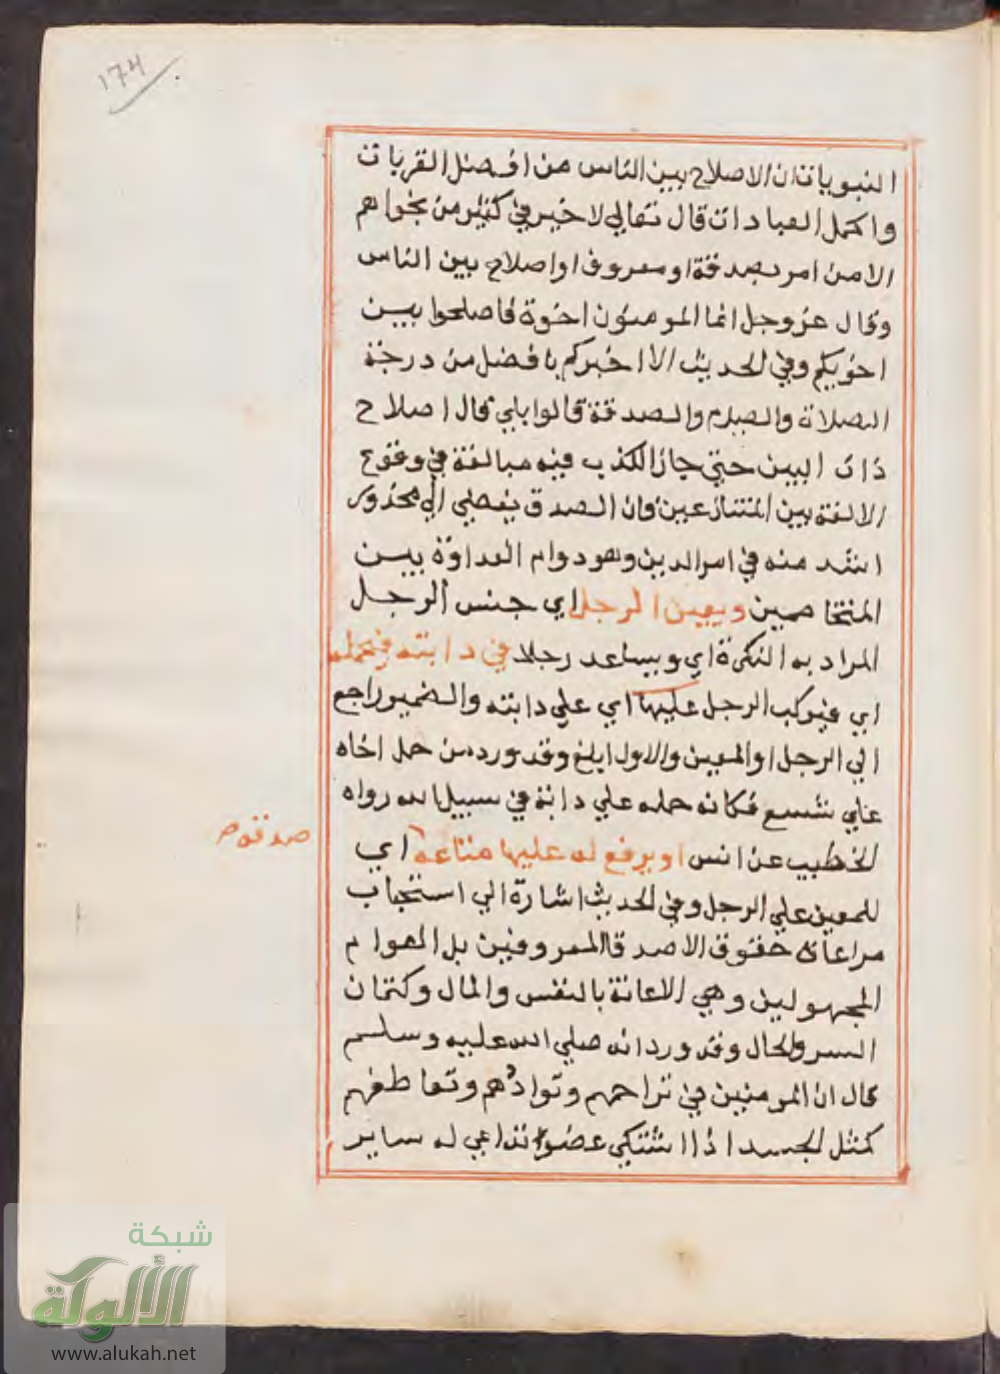 174
النبويات ان الاصلاح بين الناس من افضل القربات
واكمل العبادات قال تعالي لا خير في كثير من نجواهم
الا من امر بصدقة او معروف او اصلاح بين الناس
وقال عز وجل انما المومنون اخوة فاصلحوا بين
اخويكم وفي الحديث الا اخبركم بافضل من درجة
الصلاة والصيام والصدقة قالوا بلي قال اصلاح
ذات البين حتي جاز الكذب فيه مبالغة في وقوع
الالفة بين المتنازعين وان الصدق يفضي الي محذور
اشد منه في امر الدين وهو دوام العداوة بين
المتخاصمين ويعين الرجل اي جنس الرجل
المراد به النكرة اي ويساعد رجلا في دابته فيحمله
اي فيركب الرجل عليها اي علي دابته والضمير راجع
الي الرجل او المعين والاول ابلغ وقد ورد من حمل اخاه
علي شسع فكانه حمله علي دابة في سبيل الله رواه
الخطيب عن انس او يرفع له عليها متاعه اي
صدقة
للمعين علي الرجل وفي الحديث اشارة الي استحباب
مراعاة حقوق الاصدقا المعروفين بل العوام
المجهولين وهي الاعانة بالنفس والمال وكتمان
السر والحال وقد ورد انه صلي الله عليه وسلم
قال ان المومنين في تراحمهم وتوادهم وتعاطفهم
كمثل الجسد اذا اشتكي عضوا تداعي له ساير
شبكة
الألوكة
www.alukah.net